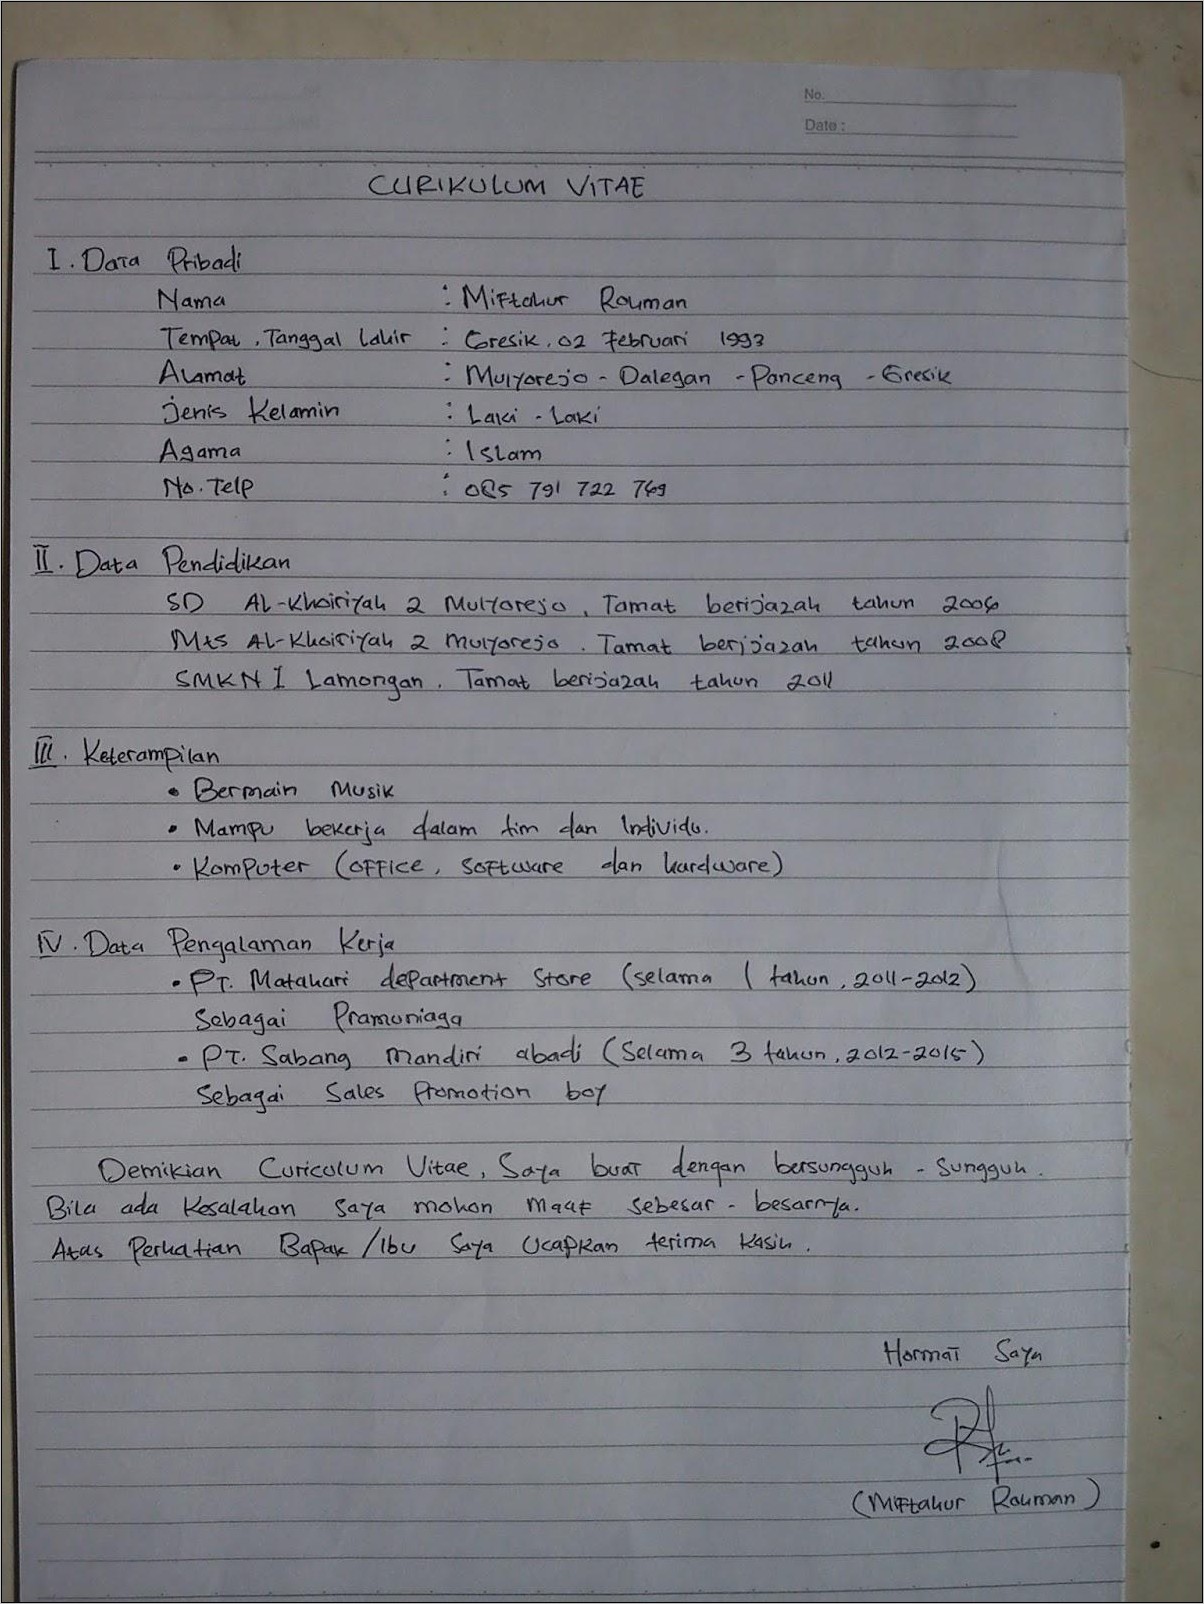 No.
Date :
CURIKULUM VITAE
I. Data Pribadi
Nama : Miftahur Rohman
Tempat, Tanggal Lahir : Gresik, 02 Februari 1993
Alamat : Mulyorejo - Dalegan - Panceng - Gresik
Jenis Kelamin : Laki - Laki
Agama : Islam
No. Telp : 085 791 722 769
II. Data Pendidikan
SD AL-Khoiriyah 2 Mulyorejo, Tamat berijazah tahun 2006
Mts AL-Khoiriyah 2 Mulyorejo. Tamat berijazah tahun 2008
SMKN I Lamongan. Tamat berijazah tahun 2011
III. Keterampilan
• Bermain Musik
• Mampu bekerja dalam tim dan Individu.
• Komputer (OFFICE, Software dan hardware)
IV. Data Pengalaman Kerja
• PT. Matahari department Store (selama 1 tahun, 2011-2012)
Sebagai Pramuniaga
• PT. Sabang Mandiri abadi (Selama 3 tahun, 2012-2015)
Sebagai Sales Promotion boy
Demikian Curiculum Vitae, Saya buat dengan bersungguh - sungguh.
Bila ada Kesalahan saya mohon maaf sebesar - besarnya.
Atas Perhatian Bapak/Ibu Saya Ucapkan terima Kasih.
Hormat Saya
(Miftahur Rohman)